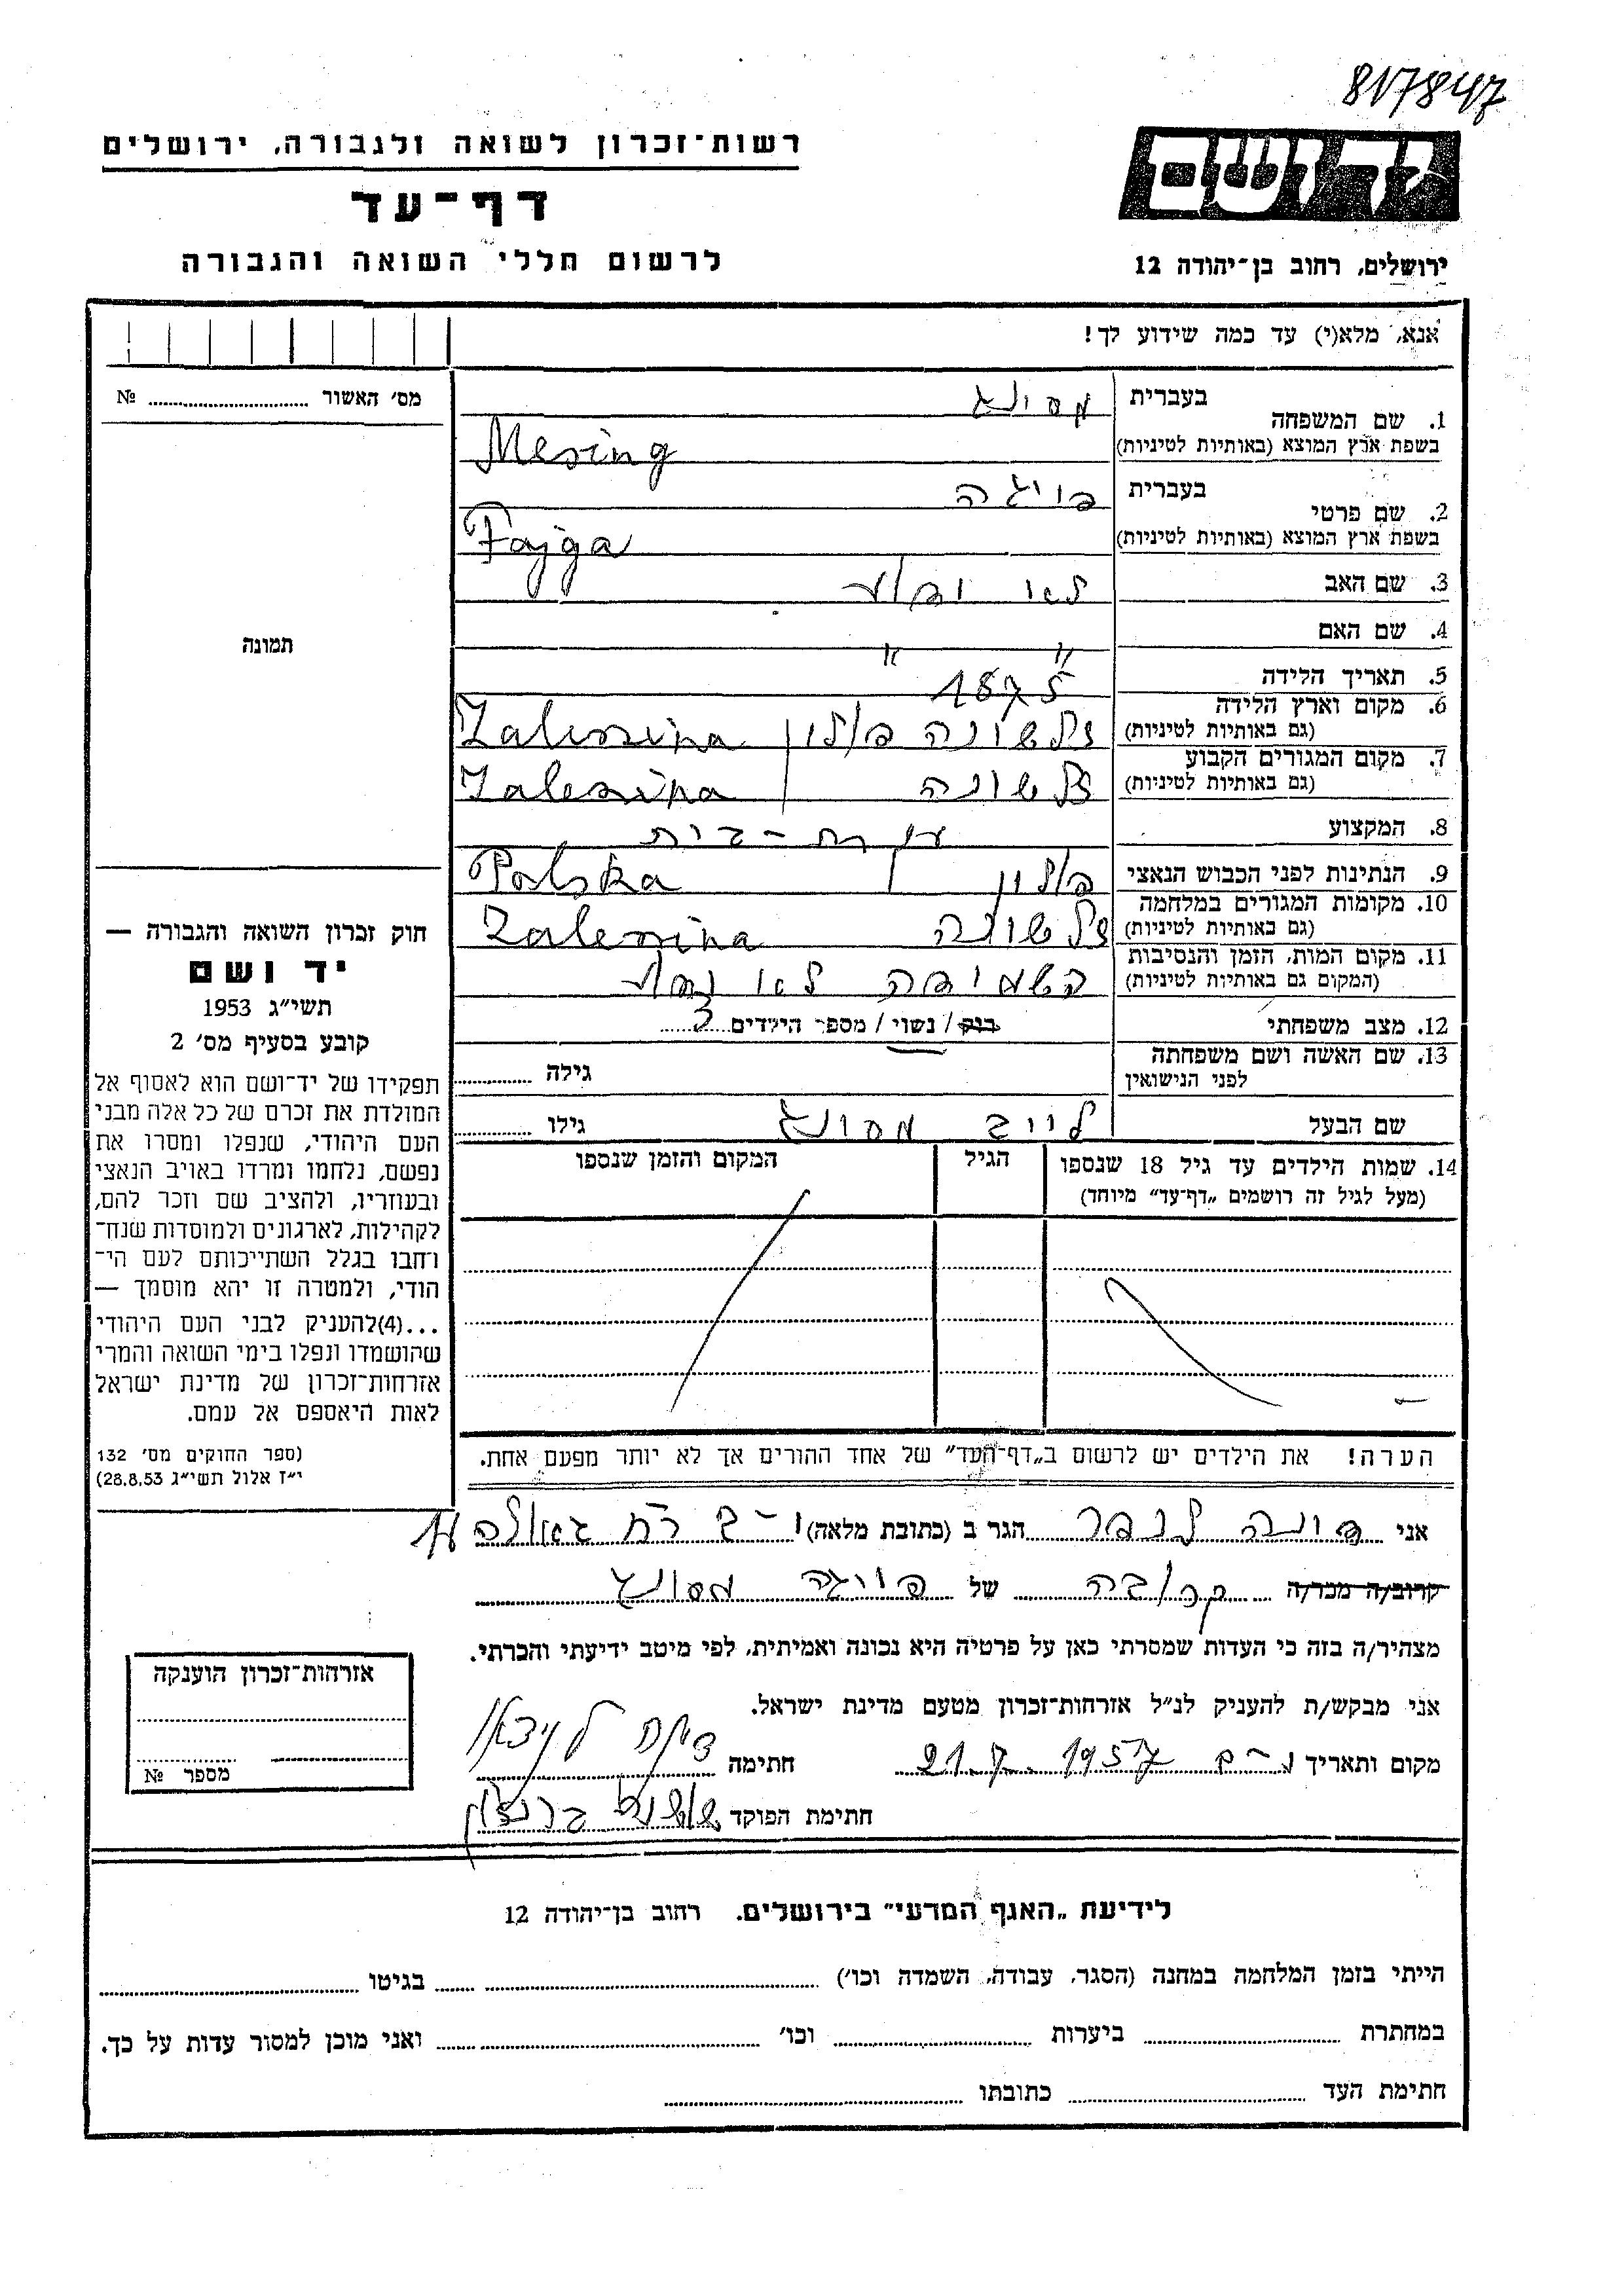 817847
יד ושם
רשות־זכרון לשואה ולגבורה, ירושלים
דף־עד
לרשום חללי השואה והגבורה
ירושלים, רחוב בן־יהודה 12
אנא, מלא(י) עד כמה שידוע לך!
מס׳ האשור № ........
1. שם המשפחה
בעברית מסינג
בשפת ארץ המוצא (באותיות לטיניות) Mesing
2. שם פרטי
בעברית פייגה
בשפת ארץ המוצא (באותיות לטיניות) Fajga
3. שם האב לא ידוע
4. שם האם " "
5. תאריך הלידה 1875
6. מקום וארץ הלידה
(גם באותיות לטיניות) זלשינה פולין Zaleszina
7. מקום המגורים הקבוע
(גם באותיות לטיניות) זלשינה Zaleszina
8. המקצוע עקרת-בית
9. הנתינות לפני הכבוש הנאצי פולין Polska
10. מקומות המגורים במלחמה
(גם באותיות לטיניות) זלשינה Zaleszina
11. מקום המות, הזמן והנסיבות
(המקום גם באותיות לטיניות) השמידה לא נודע
12. מצב משפחתי רווק / נשוי / מספר הילדים
13. שם האשה ושם משפחתה
לפני הנישואין גילה
שם הבעל לייב מסינג גילו
14. שמות הילדים עד גיל 18 שנספו
(מעל לגיל זה רושמים „דף־עד” מיוחד)
הגיל
המקום והזמן שנספו
הערה! את הילדים יש לרשום ב„דף־העד” של אחד ההורים אך לא יותר מפעם אחת.
תמונה
חוק זכרון השואה והגבורה —
יד ושם
תשי״ג 1953
קובע בסעיף מס׳ 2
תפקידו של יד־ושם הוא לאסוף אל
המולדת את זכרם של כל אלה מבני
העם היהודי, שנפלו ומסרו את
נפשם, נלחמו ומרדו באויב הנאצי
ובעוזריו, ולהציב שם וזכר להם,
לקהילות, לארגונים ולמוסדות שנח־
רחבו בגלל השתייכותם לעם הי־
הודי, ולמטרה זו יהא מוסמך —
...(4)להעניק לבני העם היהודי
שהושמדו ונפלו בימי השואה והמרי
אזרחות־זכרון של מדינת ישראל
לאות היאספם אל עמם.
(ספר החוקים מס׳ 132
י״ז אלול תשי״ג 28.8.53)
אני דינה הגר ב (כתובת מלאה) י-ם רח גאולה
קרוב/ה מכר/ה קרובה של פייגה מסינג
מצהיר/ה בזה כי העדות שמסרתי כאן על פרטיה היא נכונה ואמיתית, לפי מיטב ידיעתי והכרתי.
אני מבקש/ת להעניק לנ״ל אזרחות־זכרון מטעם מדינת ישראל.
מקום ותאריך י-ם 21.7.1957 חתימה
חתימת הפוקד
אזרחות־זכרון הוענקה
מספר №
לידיעת „האגף המדעי” בירושלים. רחוב בן־יהודה 12
הייתי בזמן המלחמה במחנה (הסגר, עבודה, השמדה וכו׳) בגיטו
במחתרת ביערות וכו׳ ואני מוכן למסור עדות על כך.
חתימת העד כתובתו